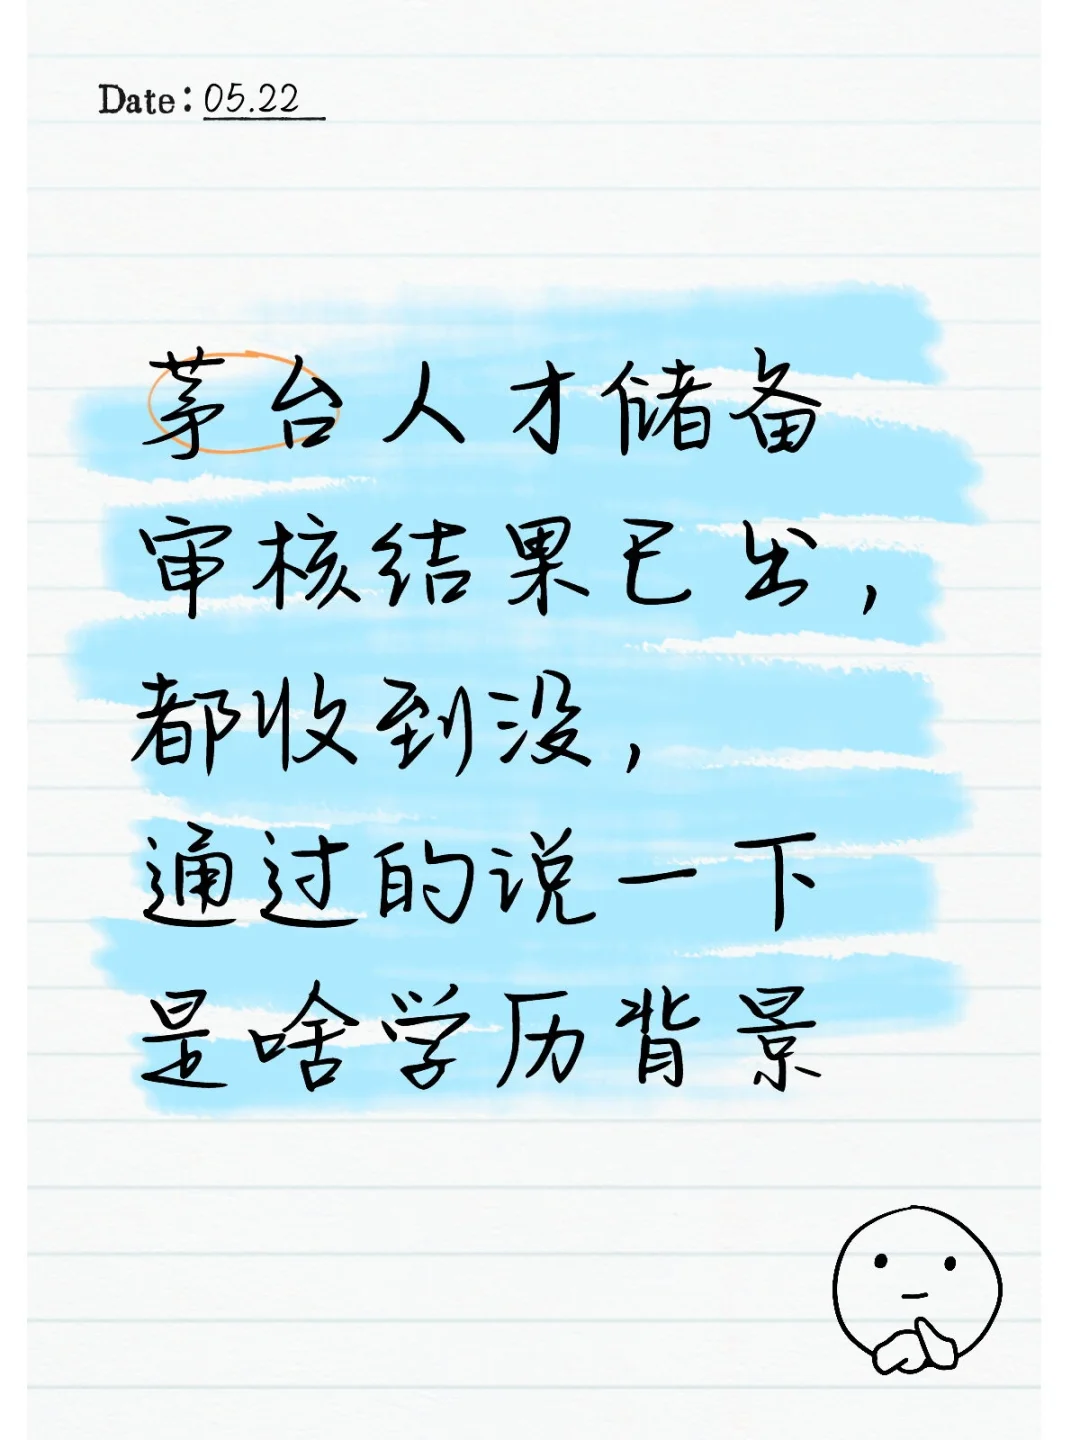 Date: 05.22
茅台人才储备
审核结果已出，
都收到没，
通过的说一下
是啥学历背景